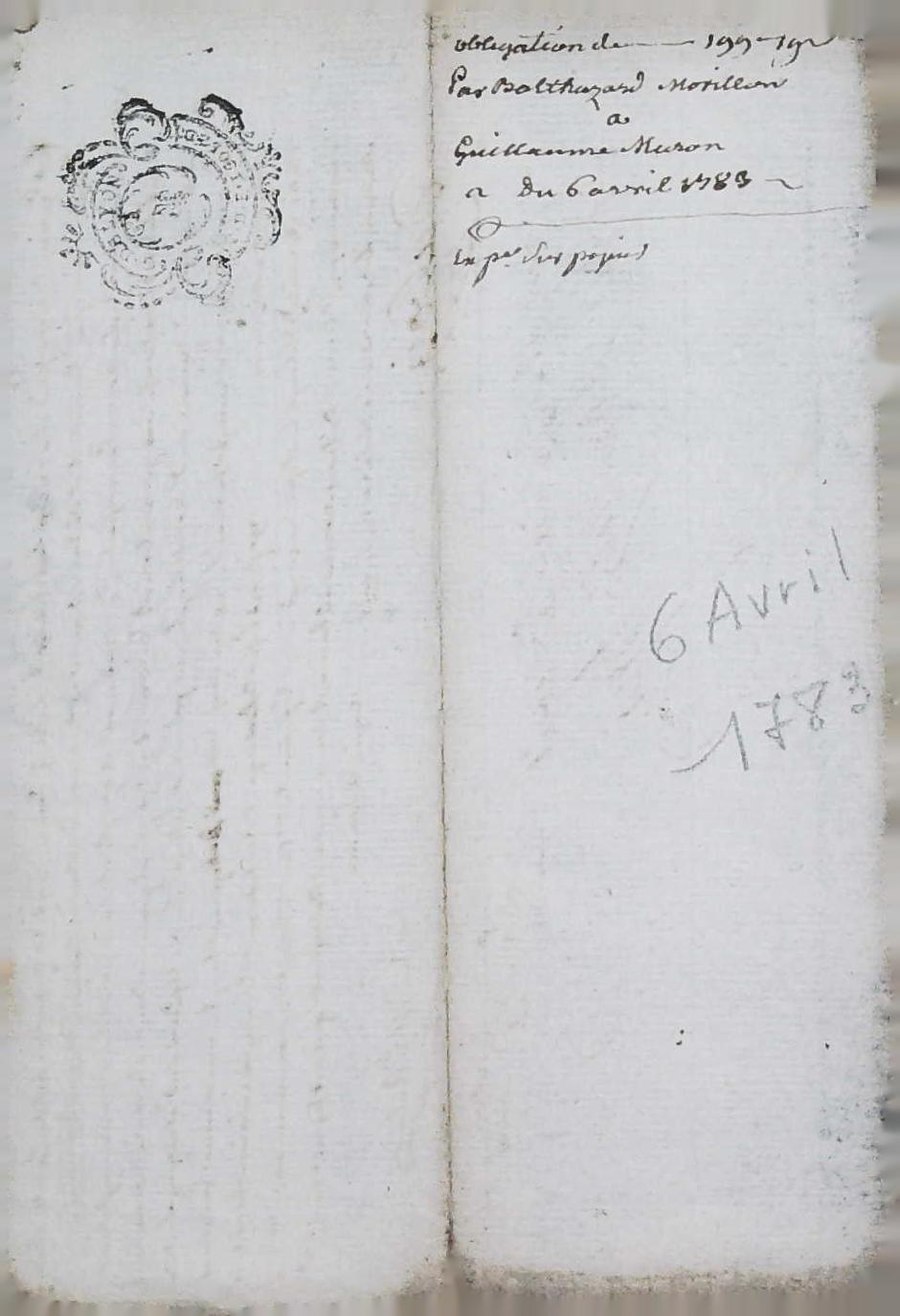 obligation de —— 199 - 19
Par Balthazard Morillon
a
Guillaume Muron
a du 6 avril 1783
6 Avril
1783